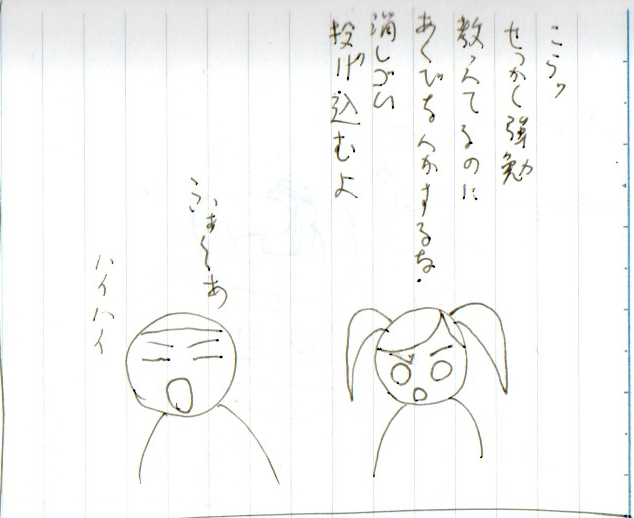 こらッ
せっかく強勉
教えてるのに
あくびなんかするな.
消しゴム
投げ込むよ
ふぁ〜あ
ハイハイ